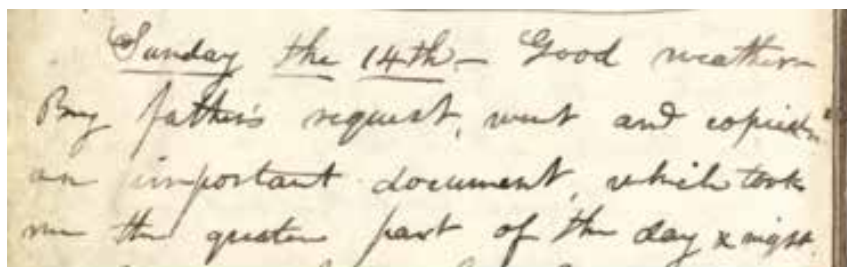 Sunday the 14th - Good weather -
By father's request, went and copied
an important document, which took
me the greater part of the day & night.